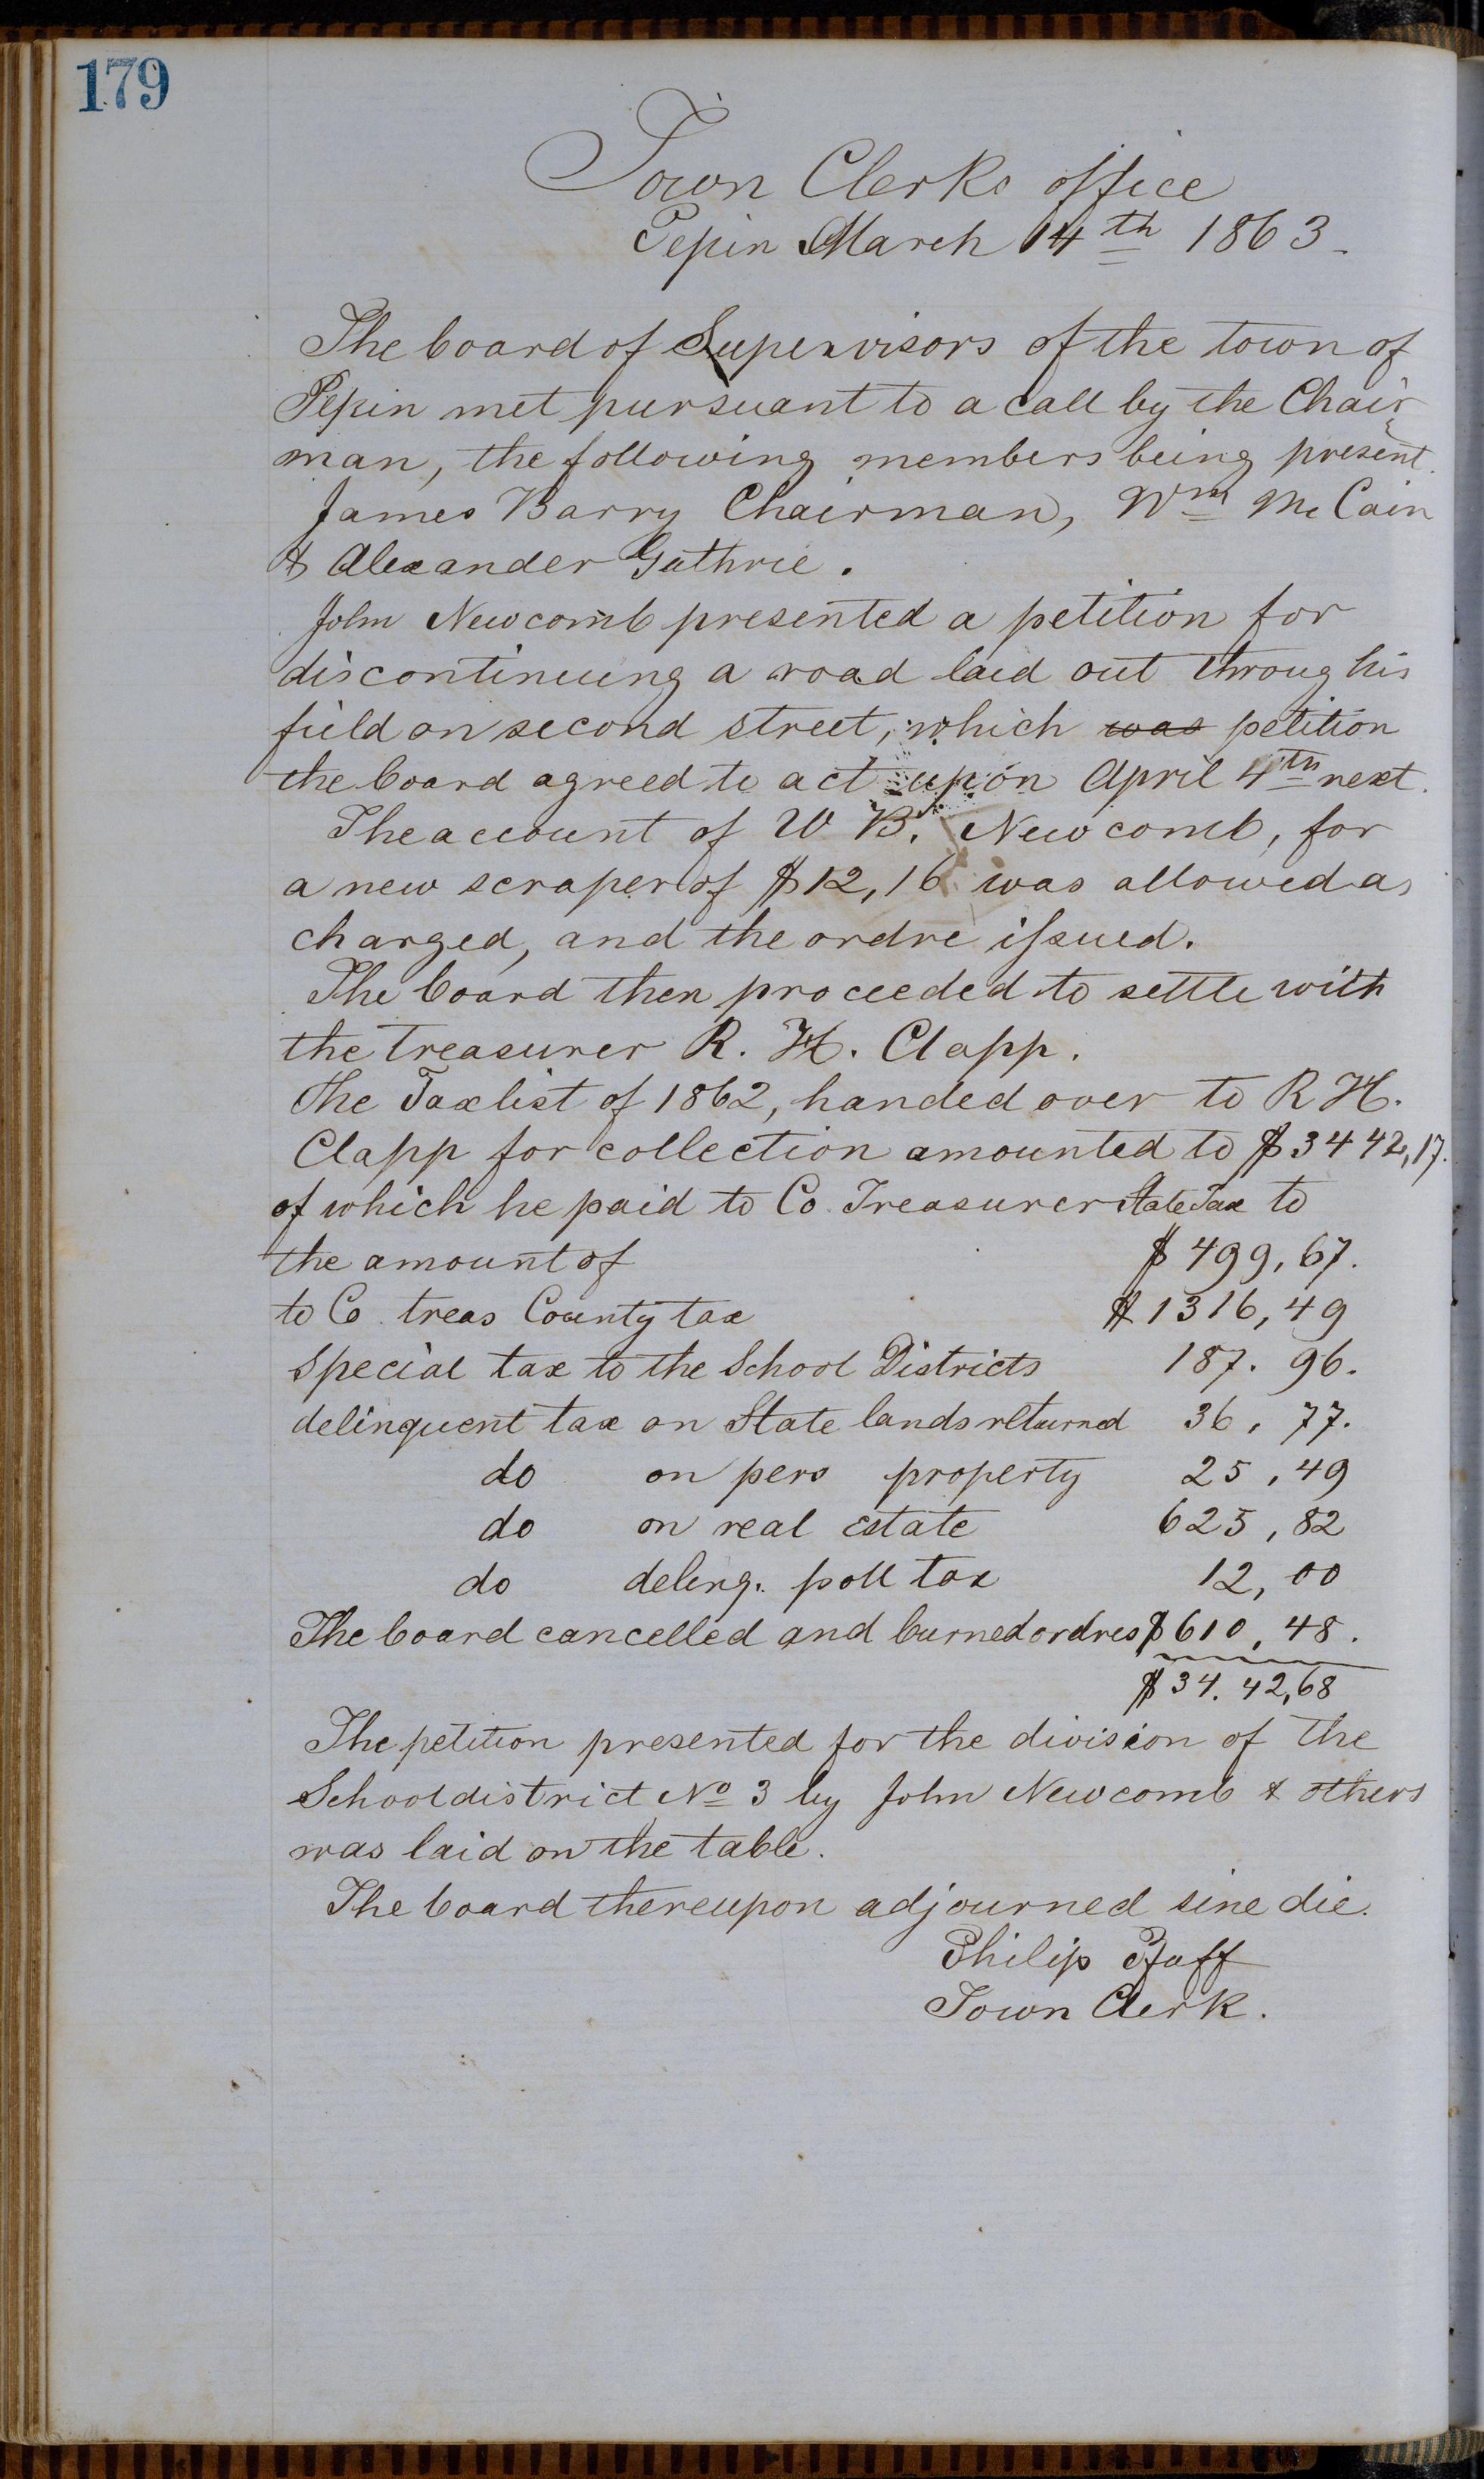 179
Town Clerks office
Pepin March 14th 1863.
The board of Supervisors of the town of
Pepin met pursuant to a call by the Chair
man, the following members being present.
James Barry Chairman, Wm McCain
& Alexander Guthrie.
John Newcomb presented a petition for
discontinuing a road laid out throug his
field on second street, which was petition
the board agreed to act upon April 4th next.
The account of W B. Newcomb, for
a new scraper of $12,16 was allowed as
charged, and the ordre issued.
The board then proceeded to settle with
the treasurer R. H. Clapp.
The Taxlist of 1862, handed over to R H.
Clapp for collection amounted to $3442,17.
of which he paid to Co. Treasurer State Tax to
the amount of $499,67.
to Co. treas County tax $1316,49
special tax to the School Districts 187.96.
delinquent tax on State lands returned 36,77.
do on pers property 25,49
do on real estate 625,82
do delinq. poll tax 12,00
The board cancelled and burned ordres $610,48.
$34.42,68
The petition presented for the division of the
School district No 3 by John Newcomb & others
was laid on the table.
The board thereupon adjourned sine die.
Philip Pfaff
Town Clerk.